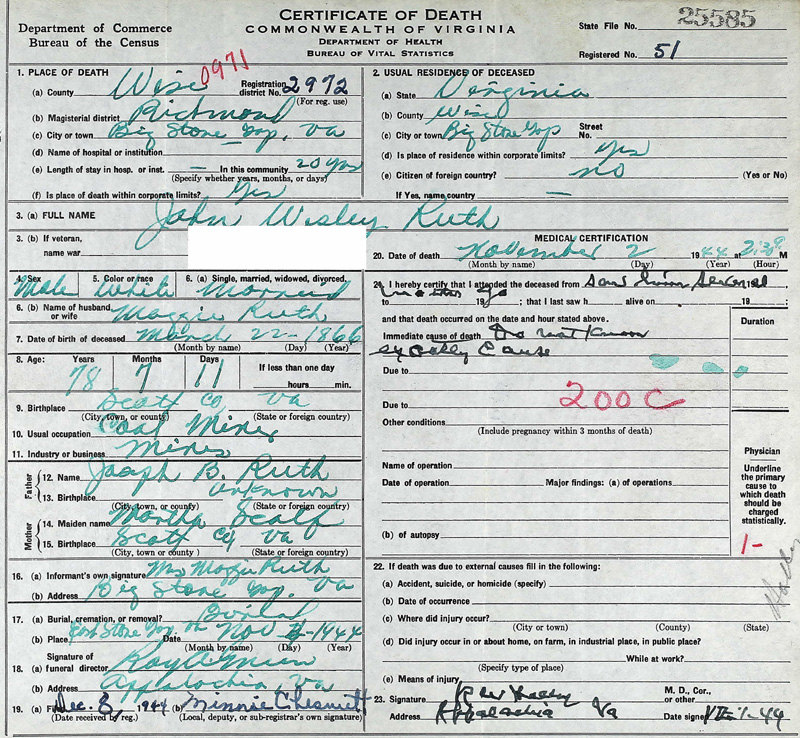 Department of Commerce
Bureau of the Census
CERTIFICATE OF DEATH
COMMONWEALTH OF VIRGINIA
DEPARTMENT OF HEALTH
BUREAU OF VITAL STATISTICS
State File No. 25585
Registered No. 51
1. PLACE OF DEATH
(a) County Wise 0971 Registration district No. 2972
(For reg. use)
(b) Magisterial district Richmond
(c) City or town Big Stone Gap, Va
(d) Name of hospital or institution
(e) Length of stay in hosp. or inst. — In this community 20 yrs
(Specify whether years, months, or days)
(f) Is place of death within corporate limits? Yes
2. USUAL RESIDENCE OF DECEASED
(a) State Virginia
(b) County Wise
(c) City or town Big Stone Gap Street No.
(d) Is place of residence within corporate limits? Yes
(e) Citizen of foreign country? no (Yes or No)
If Yes, name country —
3. (a) FULL NAME John Wesley Ruth
3. (b) If veteran,
name war
4. Sex 5. Color or race 6. (a) Single, married, widowed, divorced,
Male White Married
6. (b) Name of husband or wife Maggie Ruth
7. Date of birth of deceased March 22-1866
(Month by name) (Day) (Year)
8. Age: Years Months Days If less than one day
78 7 11 hours min.
9. Birthplace Scott Co Va
(City, town, or county) (State or foreign country)
10. Usual occupation Coal Miner
11. Industry or business Mines
Father
12. Name Joseph B. Ruth
13. Birthplace Unknown
(City, town, or county) (State or foreign country)
Mother
14. Maiden name Martha
15. Birthplace Scott Co Va
(City, town, or county) (State or foreign country)
16. (a) Informant's own signature Mrs Maggie Ruth
(b) Address Big Stone Gap, Va
17. (a) Burial, cremation, or removal? Burial
(b) Place East Stone Gap Va Date Nov -1944
(Month by name) (Day) (Year)
Signature of
18. (a) funeral director Roy A Green
(b) Address Appalachia, Va
19. (a) Filed Dec. 8 1944 (b) Minnie Chesnutt
(Date received by reg.) (Local, deputy, or sub-registrar's own signature)
MEDICAL CERTIFICATION
20. Date of death November 2 1944 at 2:30 P M
(Month by name) (Day) (Year) (Hour)
21. I hereby certify that I attended the deceased from saw him several
months ago
to 19 ; that I last saw h alive on 19 ;
and that death occurred on the date and hour stated above.
Duration
Immediate cause of death Do not know
exactly Cause
Due to
Due to 200C
Other conditions
(Include pregnancy within 3 months of death)
Name of operation
Date of operation Major findings: (a) of operations
(b) of autopsy
Physician
Underline the primary cause to which death should be charged statistically.
1-
22. If death was due to external causes fill in the following:
(a) Accident, suicide, or homicide (specify)
(b) Date of occurrence
(c) Where did injury occur?
(City or town) (County) (State)
(d) Did injury occur in or about home, on farm, in industrial place, in public place?
While at work?
(Specify type of place)
(e) Means of injury
23. Signature M. D., Cor., or other
Address Appalachia Va Date signed